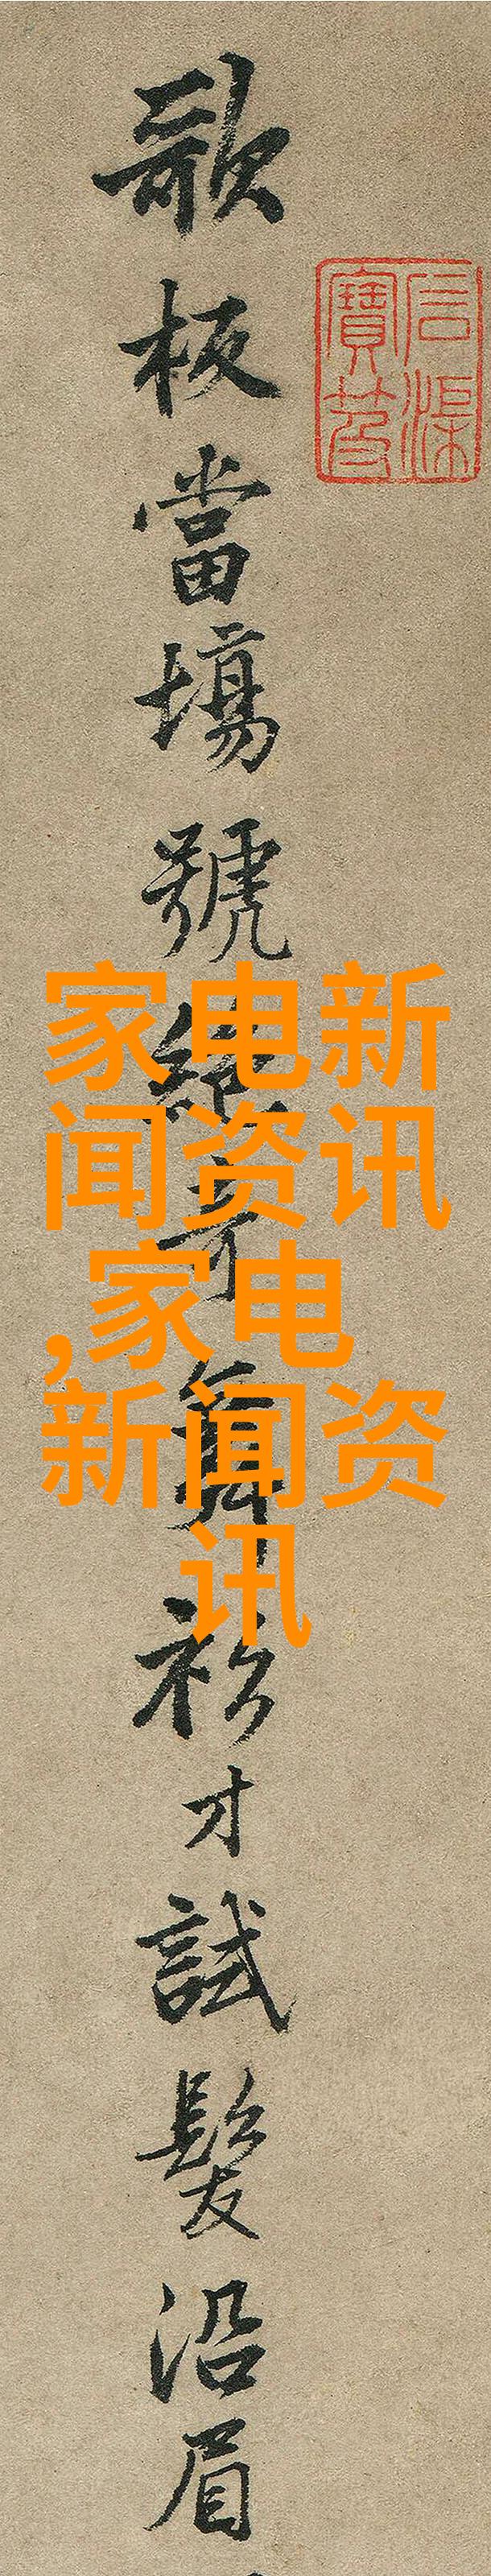 歌板當塲號絕奇舞衫才試髮沿眉
石渠
寶笈
家电新
闻资讯
,家电
新闻资
讯